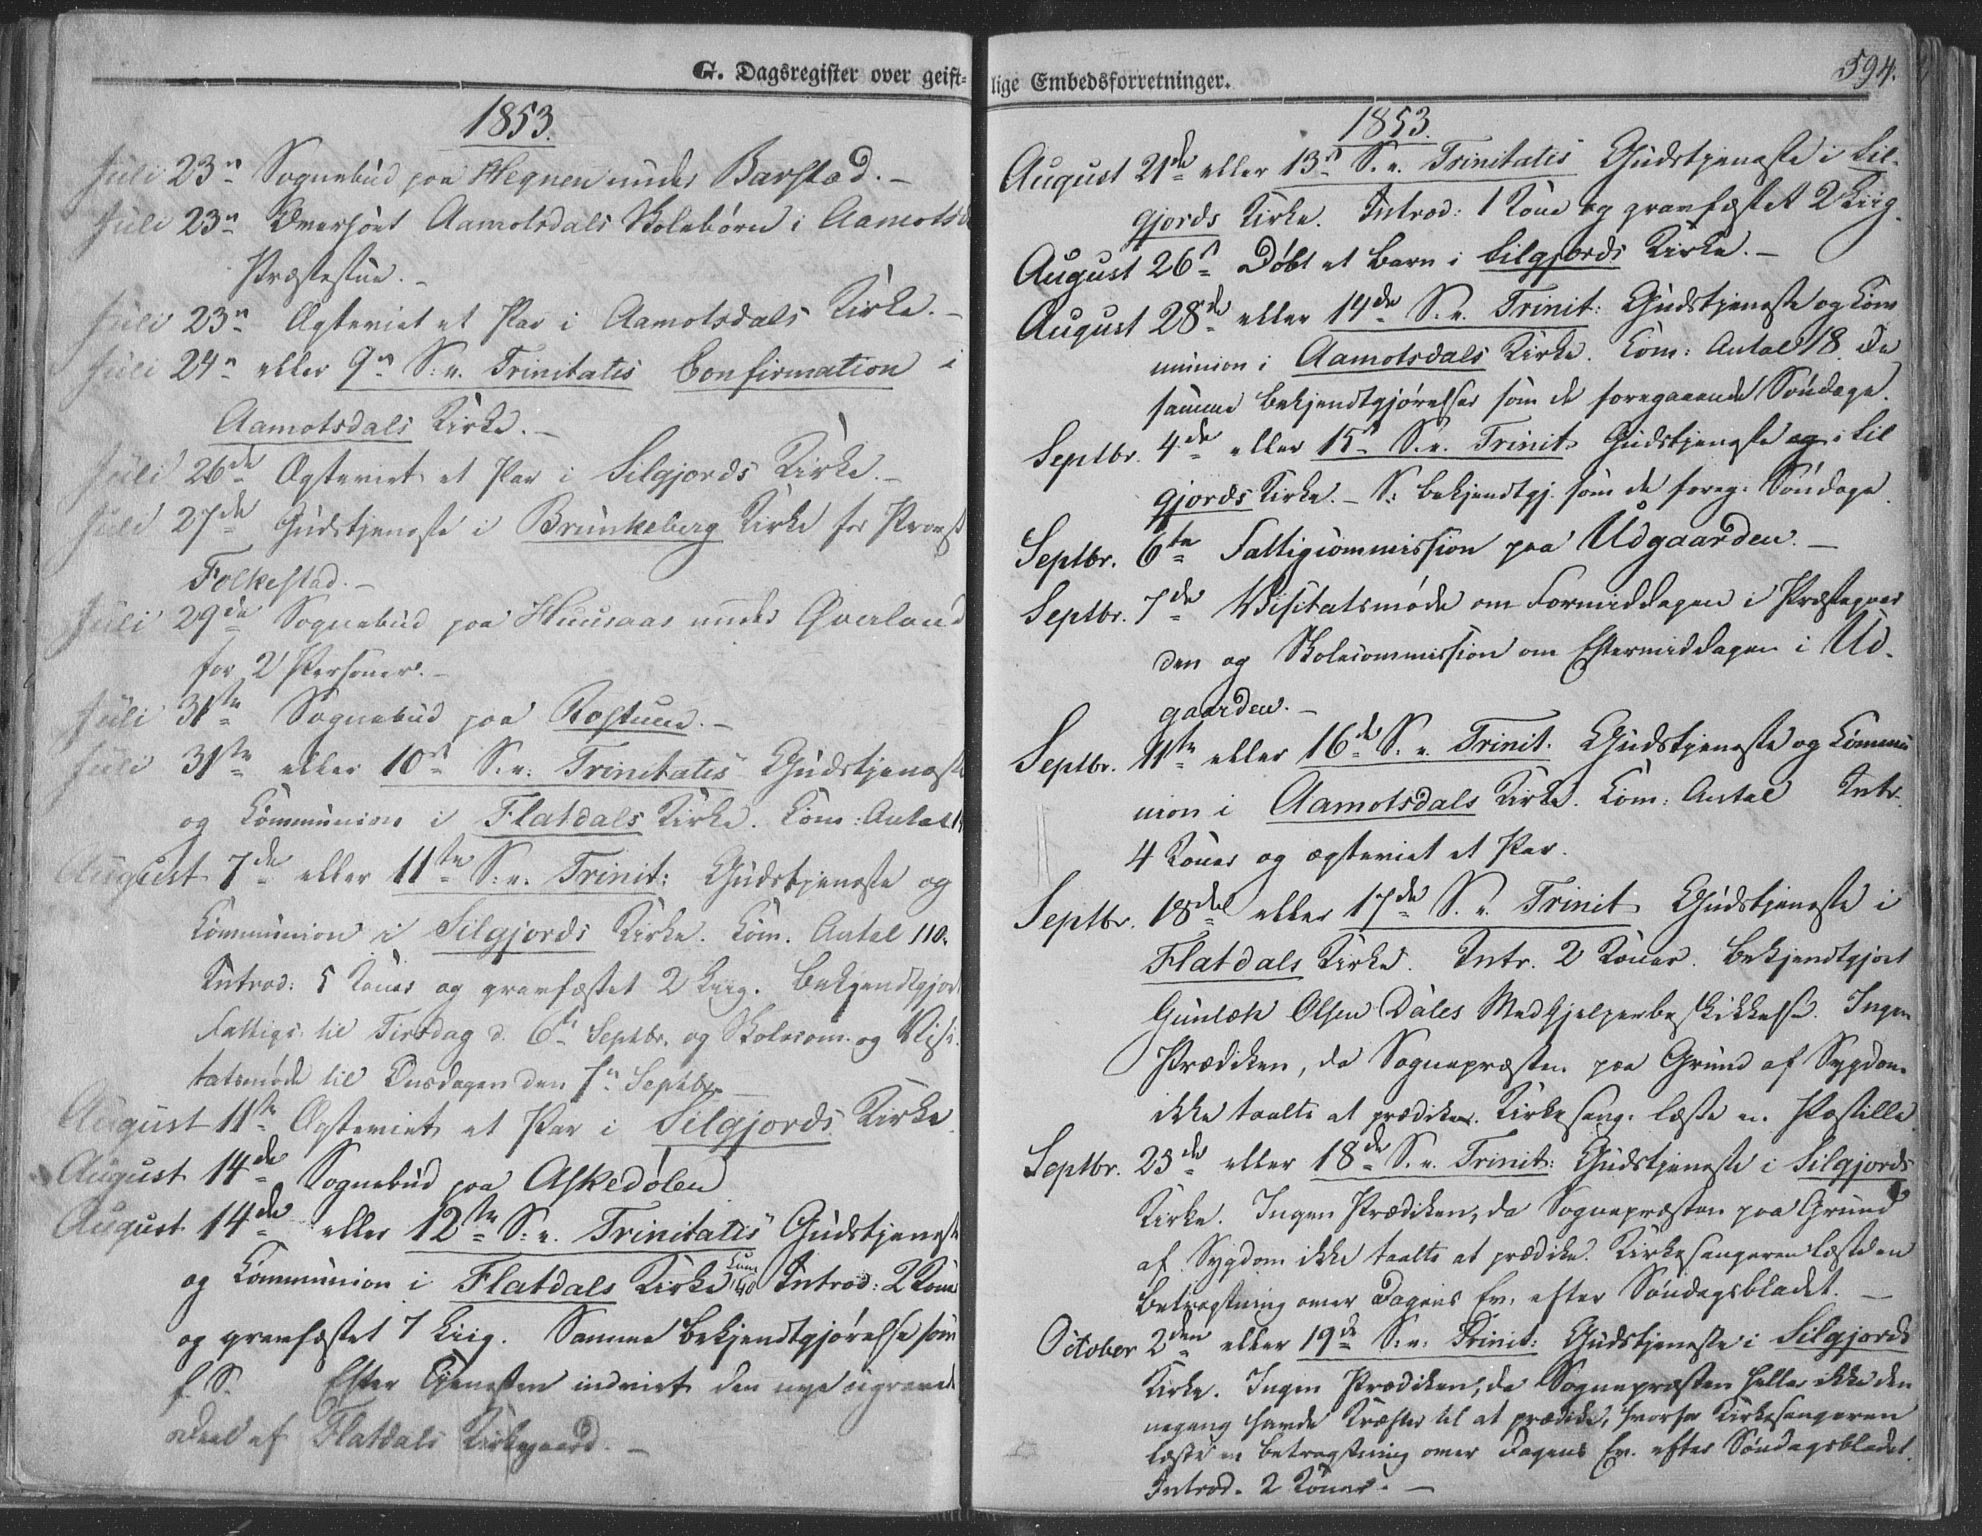 G. Dagsregister over geist-
1853.
Juli 23n Sognebud paa Hegnen under Barstad. -
Juli 23n Overhørt Aamotsdals Skolebørn i Aamotsd
Præstestue. -
Juli 23n Ægteviet et Par i Aamotsdals Kirke. -
Juli 24n eller 9n S. e. Trinitatis Confirmation i
Aamotsdals Kirke. -
Juli 26de Ægteviet et Par i Silgjords Kirke. -
Juli 27de Gudstjeneste i Brunkeberg Kirke for Provst
Folkestad. -
Juli 29de Sognebud paa Huusaas under Øverland
for 2 Personer. -
Juli 31te Sognebud paa Rostuen. -
Juli 31te eller 10n S. e. Trinitatis Gudstjeneste
og Communion i Flatdals Kirke. Com: Antal
August 7de eller 11te S. e. Trinit: Gudstjeneste og
Communion i Silgjords Kirke. Com. Antal 110.
Introd: 5 Koner og gravfæstet 2 Liig. Bekjendtgjort
Fattigc. til Tirsdag d. 6te Septbr. og Skolecom. og Visi-
tatsmøde til Onsdagen den 7n Septbr. -
August 11te Ægteviet et Par i Silgjords Kirke.
August 14de Sognebud paa Askedølen
August 14de eller 12te S. e. Trinitatis Gudstjeneste
og Communion i Flatdals Kirke Com 40 Introd: 2 Kone
og gravfæstet 7 Liig. Samme Bekjendtgjørelse som
f. S. Efter Tjenesten indviet den nye ugravede
Deel af Flatdals Kirkegaard. -
lige Embedsforretninger.
594.
1853.
August 21de eller 13n S. e. Trinitatis Gudstjeneste i Sil-
gjords Kirke. Introd: 1 Kone og gravfæstet 2 Liig.
August 26n Døbt et Barn i Silgjords Kirke. -
August 28de eller 14de S. e. Trinit: Gudstjeneste og Com
munion i Aamotsdals Kirke. Com: Antal 18. De
samme Bekjendtgjørelser som de foregaaende Søndage.
Septbr. 4de eller 15n S. e. Trinit. Gudstjeneste og i Sil
gjords Kirke. - S: Bekjendtgj. som de foreg: Søndage.
Septbr. 6te Fattigcommission paa Udgaarden. -
Septbr. 7de Visitatsmøde om Formiddagen i Præstegaar
den og Skolecommission om Eftermiddagen i Ud-
gaarden. -
Septbr. 11te eller 16de S. e. Trinit. Gudstjeneste og Commu
nion i Aamotsdals Kirke. Com: Antal Intr.
4 Koner og ægteviet et Par.
Septbr. 18de eller 17de S. e. Trinit Gudstjeneste i
Flatdals Kirke. Intr. 2 Koner. Bekjendtgjort
Gunlæk Olsen Dales Medhjelperbeskikkelse. Ingen
Prædiken, da Sognepræsten paa Grund af Sygdom
ikke taalte at prædiken. Kirkesang. læste en Postille.
Septbr. 25de eller 18de S. e. Trinit: Gudstjeneste i Silgjords
Kirke. Ingen Prædiken, da Sognepræsten paa Grund
af Sygdom ikke taalte at prædike. Kirkesangeren læste en
Betragtning over Dagens Ev. efter Søndagsbladet. -
October 2den eller 19de S. e. Trinit: Gudstjeneste i Silgjords
Kirke. Ingen Prædiken, da Sognepræsten heller ikke den
negang havde Kræfter til at prædike, hvorfor Kirkesangeren
læste en Betragtning over Dagens Ev. efter Søndagsbladet.
Introd. 2 Koner. -